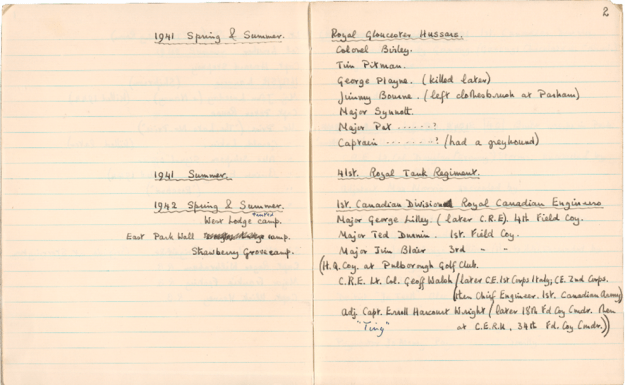 2
1941 Spring & Summer.
Royal Gloucester Hussars.
Colonel Birley.
Tim Pitman.
George Playne. (killed later)
Jimmy Bourne. (left clothesbrush at Parham)
Major Synnott.
Major Pat ......?
Captain ........? (had a greyhound)
1941 Summer.
41st. Royal Tank Regiment.
1942 Spring & Summer.
West Lodge camp.
tented
East Park Wall camp.
Strawberry Grove camp.
1st. Canadian Division Royal Canadian Engineers
Major George Lilley. (later C.R.E). 4th Field Coy.
Major Ted Durnin. 1st. Field Coy.
Major Jim Blair 3rd " "
(H.Q. Coy. at Pulborough Golf Club.
C.R.E. Lt. Col. Geoff Walsh (later C.E. 1st Corps Italy, C.E. 2nd Corps.
then Chief Engineer. 1st. Canadian Army)
Adj. Capt. Erroll Harcourt Wright (later 18th Fd. Coy Cmdr. then
"Ting" at C.E.R.H. 34th Fd. Coy Cmdr.))